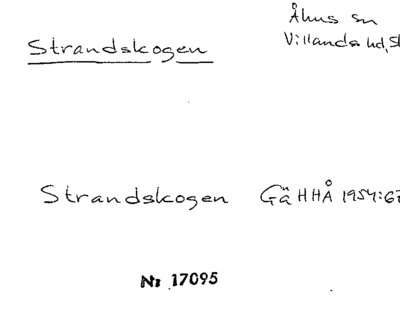 Åhus sn
Strandskogen
Villands hd, Sk
Strandskogen GäHHÅ 1954:67
Nr 17095